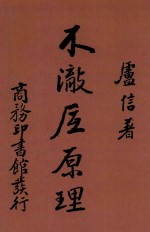 盧信著
不徹底原理
商務印書館發行